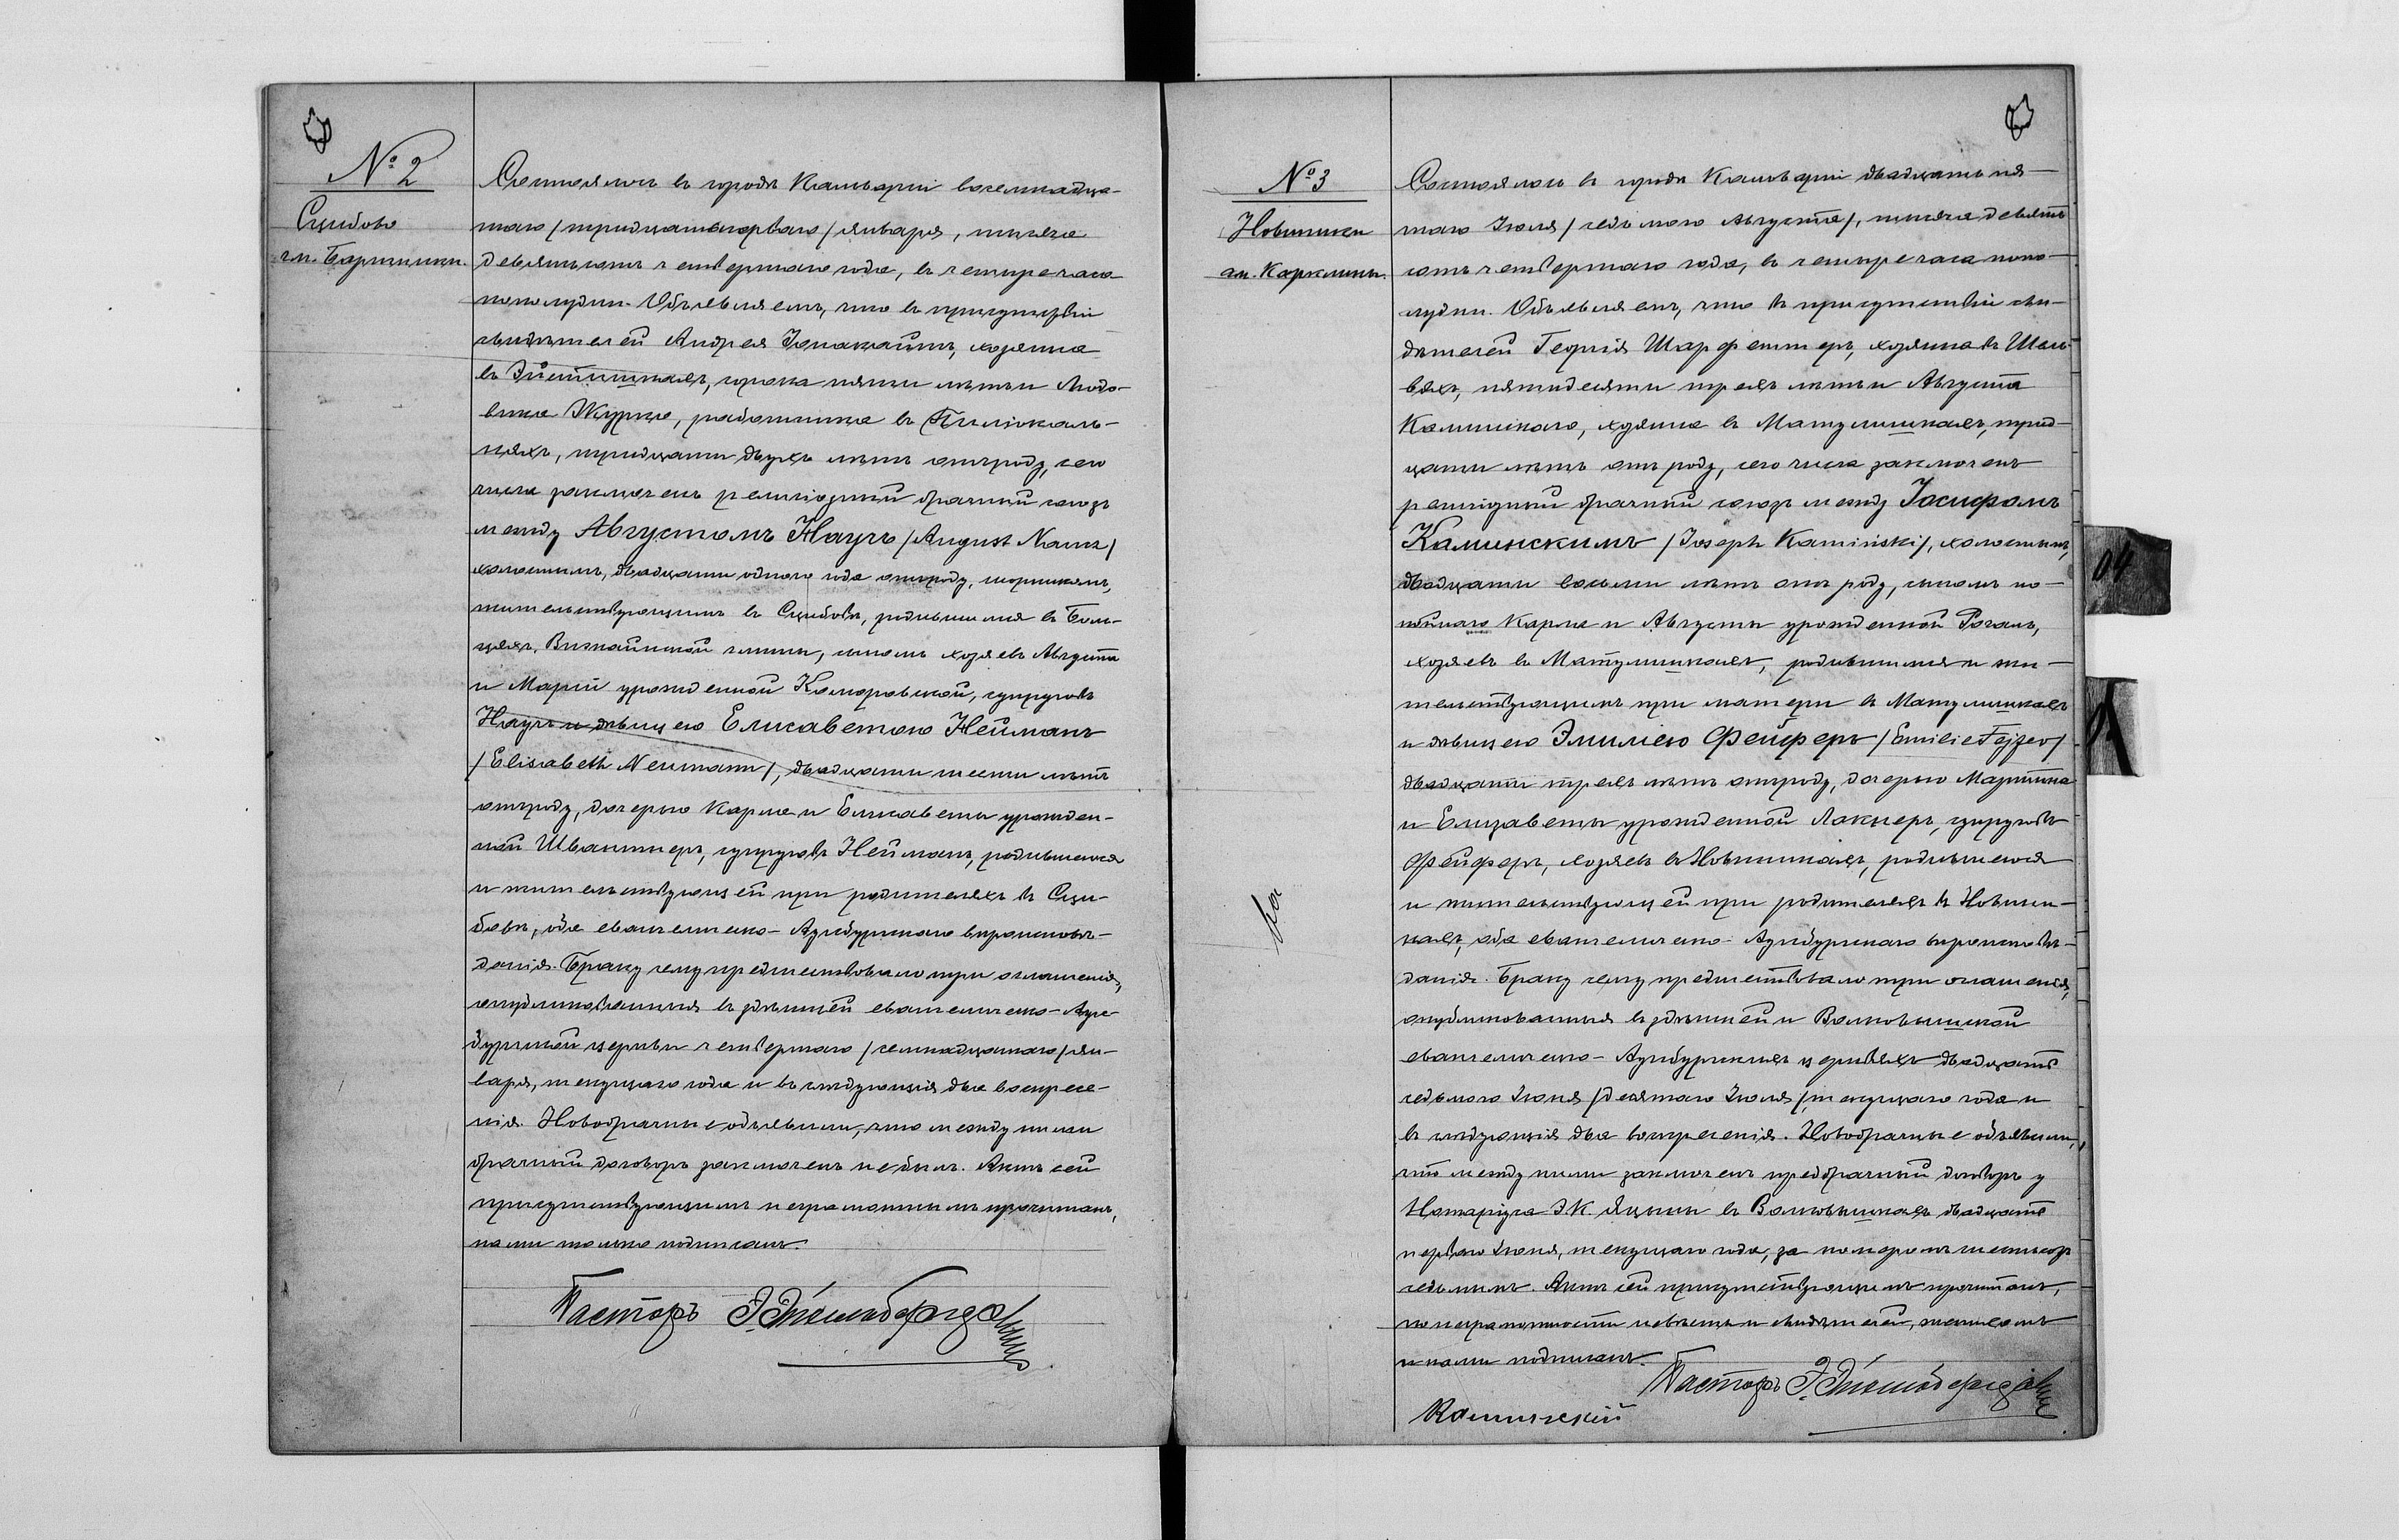 № 2
Сцибово
гм. Бартники.
Состоялось въ городѣ Кальваріи восемнадца-
таго /тридцатьперваго/ января, тысяча
девятьсотъ четвертаго года, въ четыре часа
пополудни. Объявляемъ, что въ присутствіи
свидѣтелей Андрея хозяина
въ сорока пяти лѣтъ и Людо-
вика работника въ
тридцати двухъ лѣтъ отъ роду, сего
числа заключенъ религіозный брачный союзъ
между Августомъ Наузъ /August Naus/
холостымъ, двадцати одного года отъ роду,
жительствующимъ въ Сцибовѣ, родившимся въ
гмины, сыномъ хозяевъ Августа
и Маріи урожденной Коморовской, супруговъ
Наузъ и дѣвицею Елисаветою Нейманъ
/Elisabeth Neumann/, двадцати шести лѣтъ
отъ роду, дочерью Карла и Елисаветы урожден-
ной супруговъ Нейманъ, родившеюся
и жительствующей при родителяхъ въ Сци-
бовѣ, оба евангелическо-Аугсбургскаго вѣроисповѣ-
данія. Браку сему предшествовало три оглашенія,
опубликованныя въ здѣшней евангелическо-Аугс-
бургской церкви четвертаго /семнадцатаго/ ян-
варя, текущаго года и въ слѣдующія два воскресе-
нія. Новобрачные объявили, что между ними
брачный договоръ заключенъ не былъ. Актъ сей
присутствующимъ неграмотнымъ прочитанъ,
нами только подписанъ.
Пасторъ
№ 3
Новиники
гм. Карклины.
Состоялось въ городѣ Кальваріи двадцать пя-
таго Іюля /седьмого Августа/, тысяча девять
сотъ четвертаго года, въ четыре часа попо-
лудни. Объявляемъ, что въ присутствіи сви-
дѣтелей Георгія Шарфеттеръ, хозяина въ Шаль-
вяхъ, пятидесяти трехъ лѣтъ и Августа
Каминскаго, хозяина въ Матулишкахъ, трид-
цати лѣтъ отъ роду, сего числа заключенъ
религіозный брачный союзъ между Іосифомъ
Каминскимъ /Joseph Kamiński/, холостымъ,
двадцати восьми лѣтъ отъ роду, сыномъ по-
койнаго Карла и Августы урожденной Рогаль,
хозяевъ въ Матулишкахъ, родившимся и жи-
тельствующимъ при матери въ Матулишкахъ
и дѣвицею Эмиліею Фейферъ /Emilie Fejfer/
двадцати трехъ лѣтъ отъ роду, дочерью Мартина
и Елизаветы урожденной Лакнеръ, супруговъ
Фейферъ, хозяевъ въ Новиникахъ, родившеюся
и жительствующей при родителяхъ въ Новини-
кахъ, оба евангелическо-Аугсбургскаго вѣроисповѣ-
данія. Браку сему предшествовало три оглашенія,
опубликованныя въ здѣшней и Волковышской
евангелическо-Аугсбургскихъ церквяхъ двадцать
седьмого Іюня /десятаго Іюля/, текущаго года и
въ слѣдующія два воскресенія. Новобрачные объявили,
что между ними заключенъ предбрачный договоръ у
Нотаріуса Э.К. въ Волковышкахъ двадцать
перваго Іюня, текущаго года, за номеромъ шестьсотъ
седьмымъ. Актъ сей присутствующимъ прочитанъ,
по неграмотности невѣсты и свидѣтелей, женихомъ
и нами подписанъ.
Пасторъ
Каминскій
04